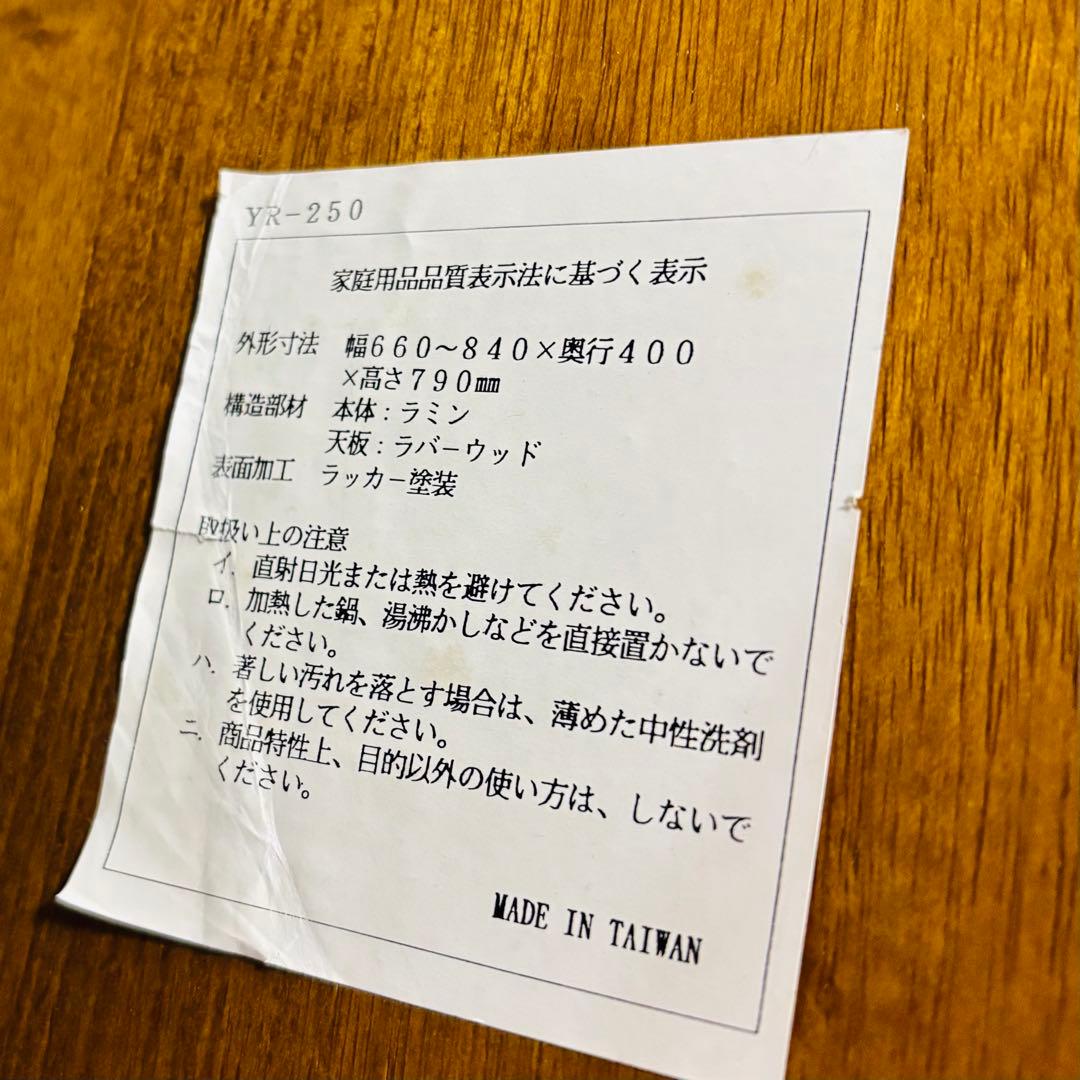 YR-250
家庭用品品質表示法に基づく表示
外形寸法 幅660～840×奥行400
×高さ790mm
構造部材 本体：ラミン
天板：ラバーウッド
表面加工 ラッカー塗装
取扱い上の注意
イ．直射日光または熱を避けてください。
ロ．加熱した鍋、湯沸かしなどを直接置かないで
ください。
ハ．著しい汚れを落とす場合は、薄めた中性洗剤
を使用してください。
ニ．商品特性上、目的以外の使い方は、しないで
ください。
MADE IN TAIWAN